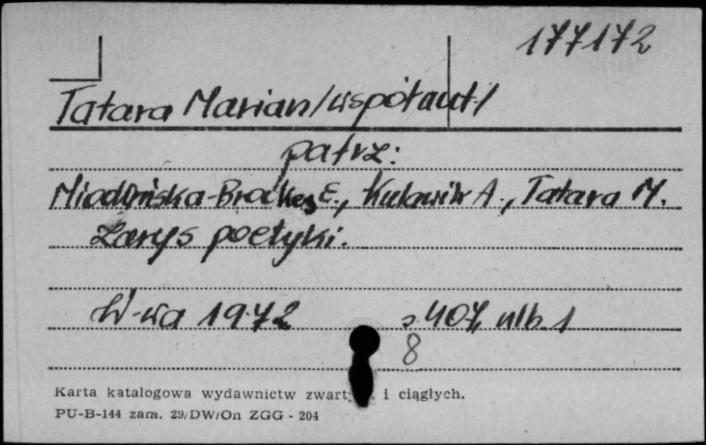 177172
Tatara Marian /współaut./
patrz:
Miodońska-Brookes E., Kulawik A., Tatara M.
Zarys poetyki.
W-wa 1972 s 407, nlb. 1
8
Karta katalogowa wydawnictw zwart i ciągłych.
PU-B-144 zam. 29/DW/On ZGG - 204